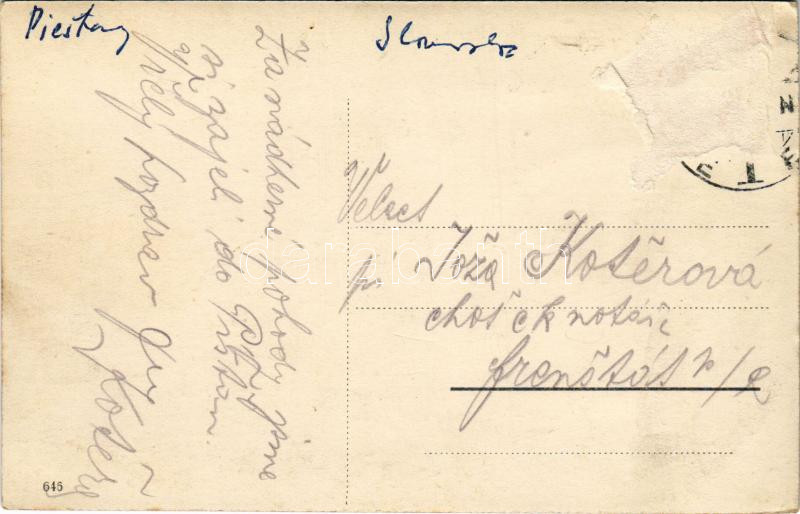 Piestany
Slovensko
Za nádherné pohody jsme
si zajeli do Pišťan.
vřelý pozdrav
Kotěra
Velect
pí
Joža Kotěrová
choť ck notáře
Frenštát p/R
646
darabanth